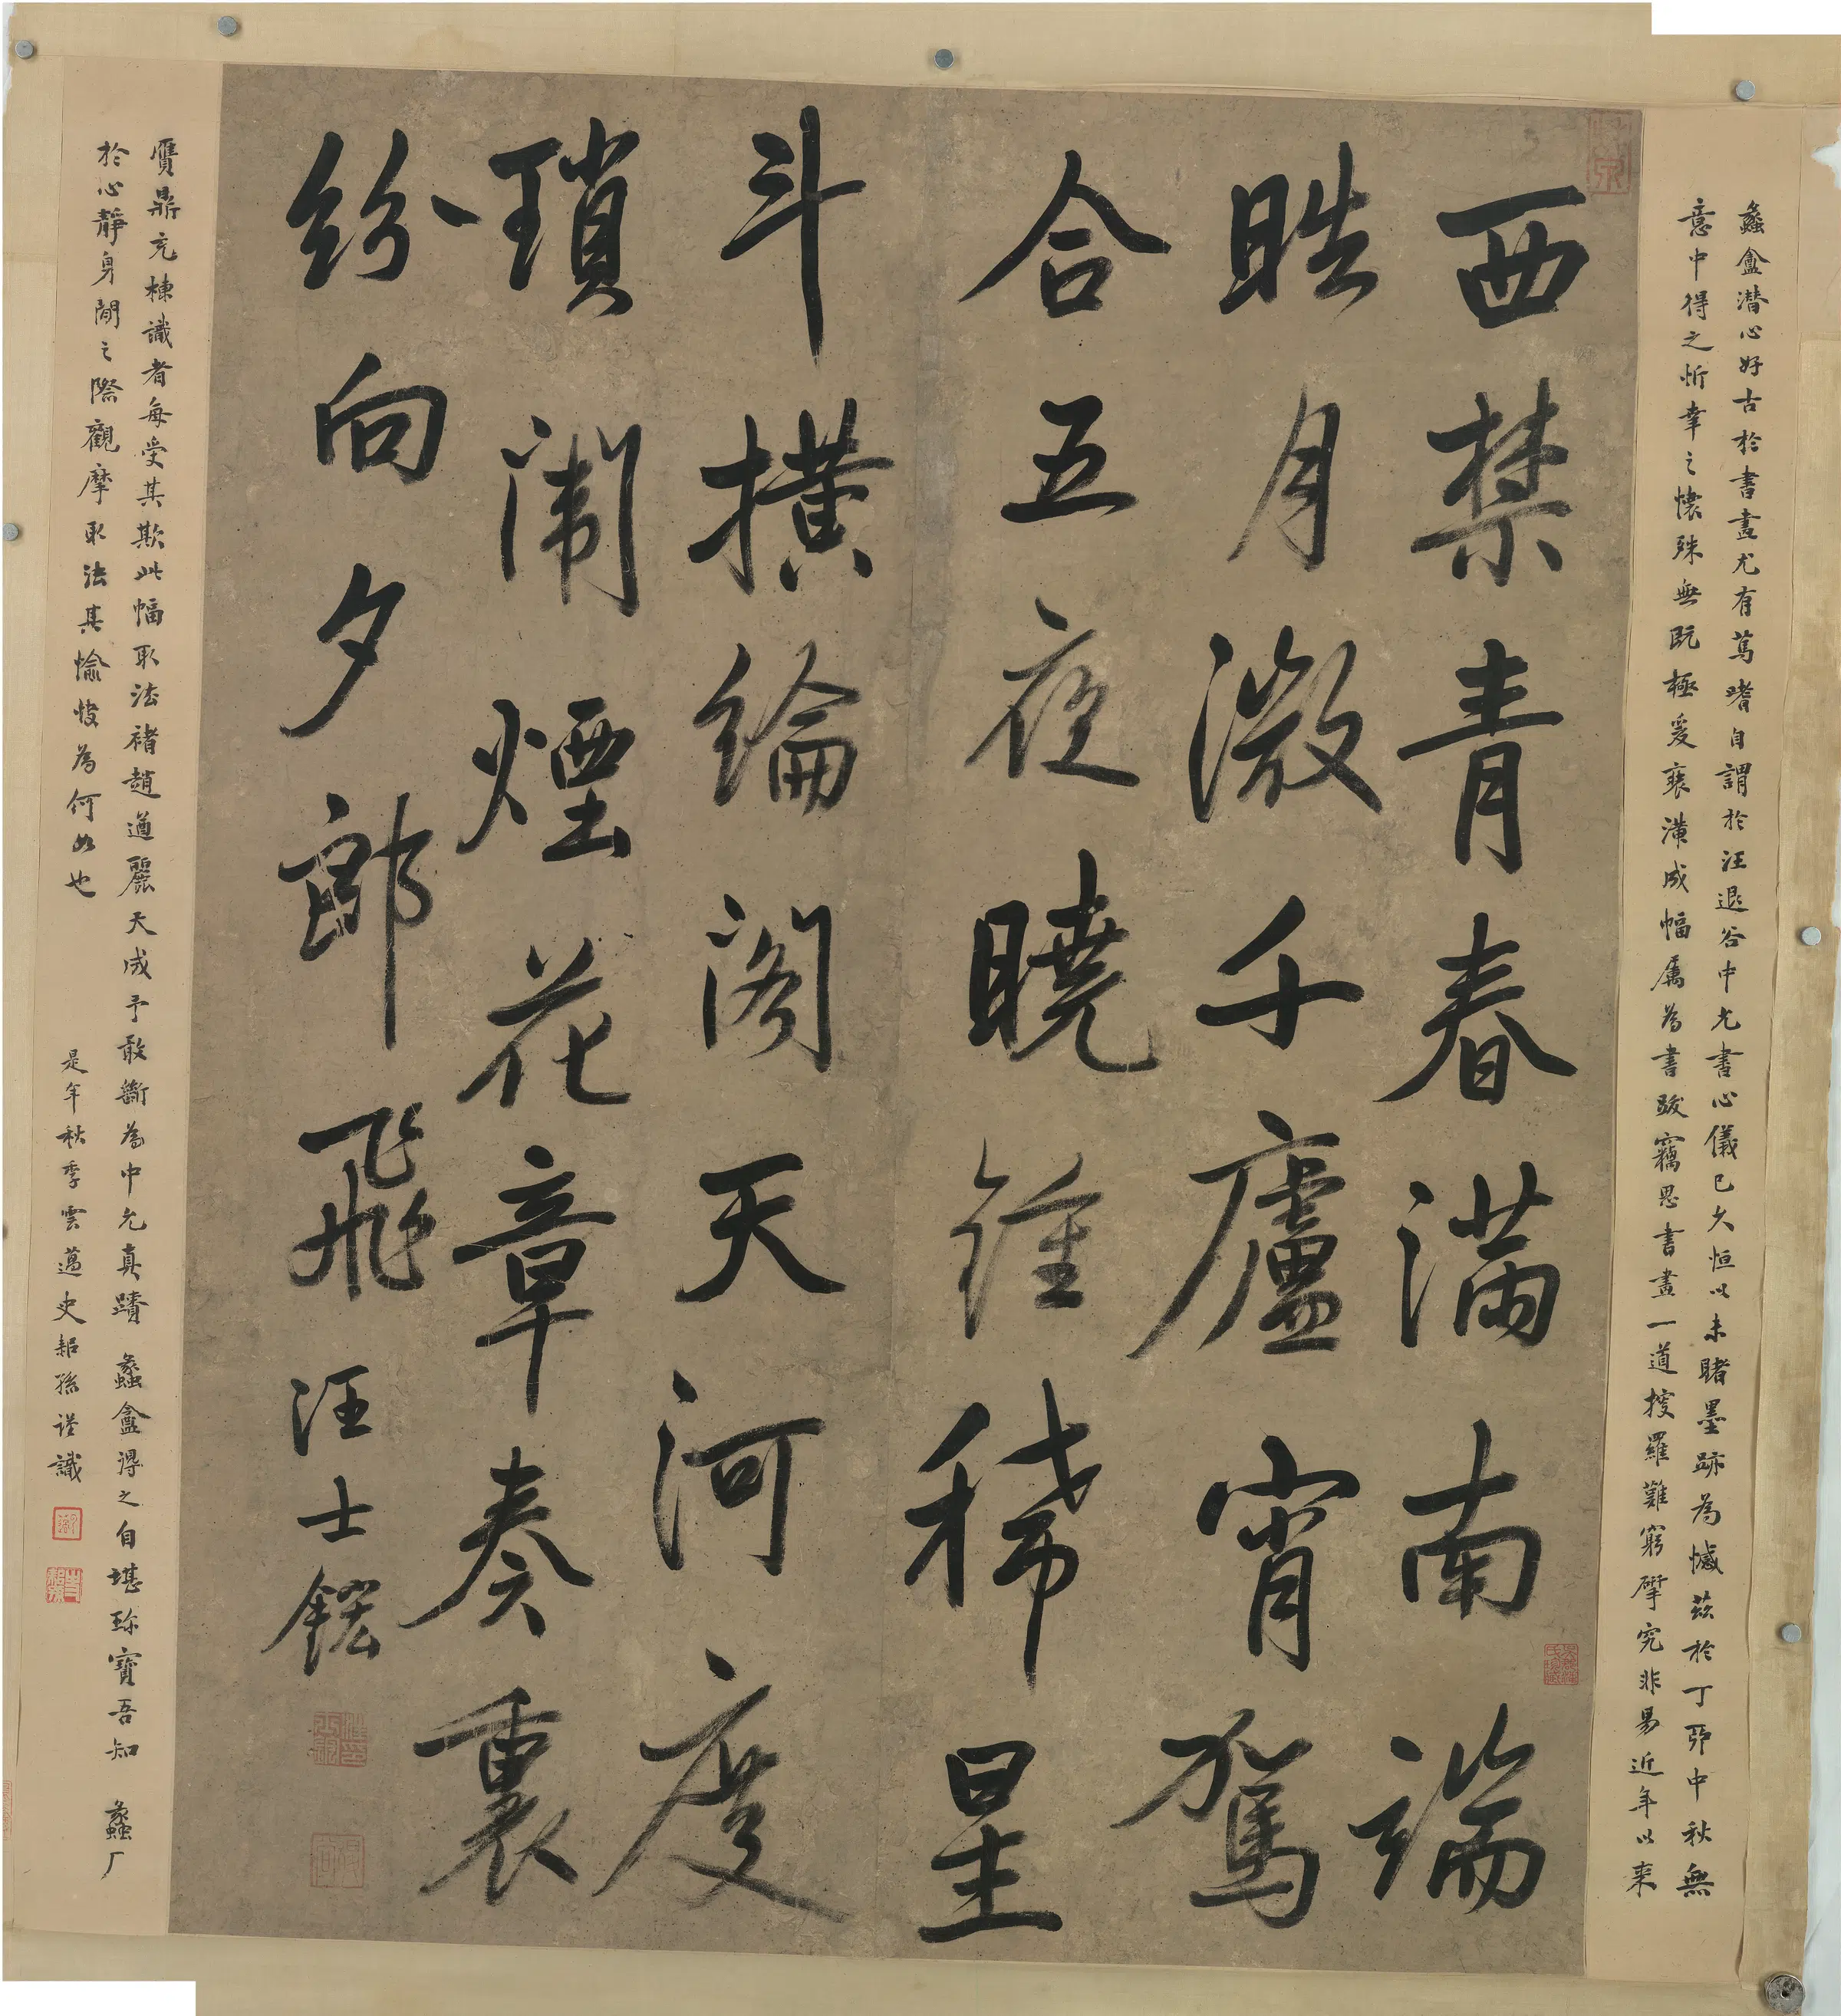 蠡盦潜心好古於書畫尤有篤嗜自謂於汪退谷中允書心儀已久恒以未睹墨跡為憾茲於丁卯中秋無
意中得之忻幸之懷殊無既極爰裝潢成幅屬為書跋竊思書畫一道搜羅難窮摩究非易近年以来
西禁青春满南端
皓月澂千廬宵駕
合五夜曉鍾稀星
斗橫綸阁天河度
瑣闈煙花章奏裏
紛向夕郎飛 汪士鋐
贋鼎充棟識者每受其欺此幅取法褚趙遒麗天成予敢斷為中允真蹟 蠡盦得之自堪珎寶吾知 蠡厂
於心靜身閒之際觀摩取法其愉快為何如也
是年秋季雲邁史喆孫謹識